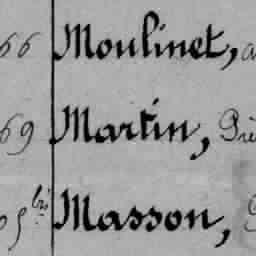 66 Moulinet,
69 Martin,
05 bis Masson,